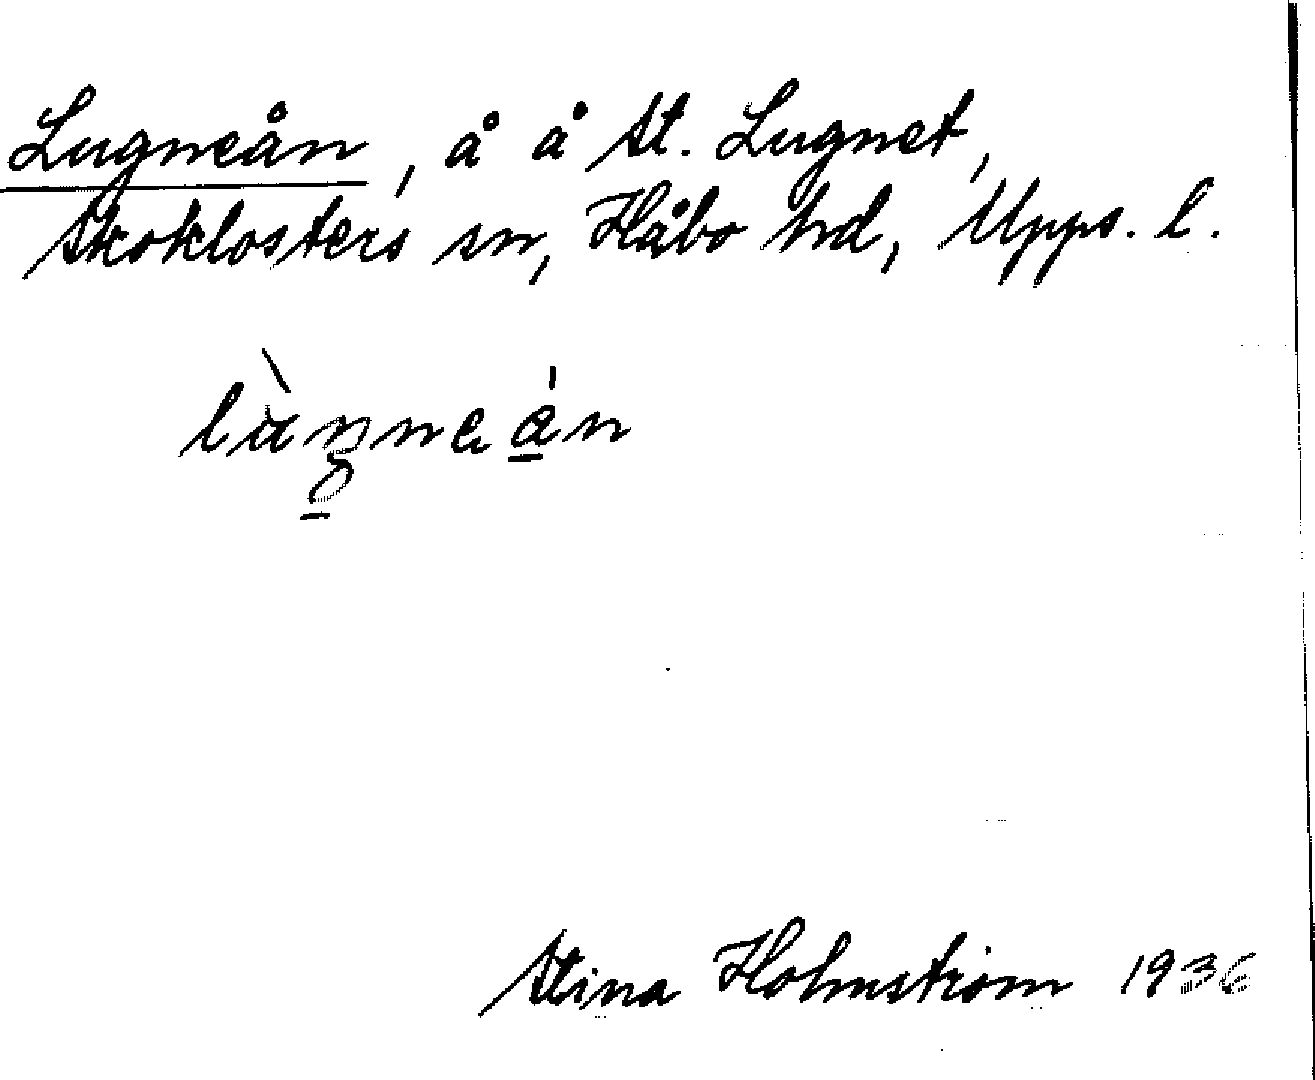 Lugneån, å å St. Lugnet,
Skoklosters sn, Håbo hd, Upps. l.
Stina Holmström 1936